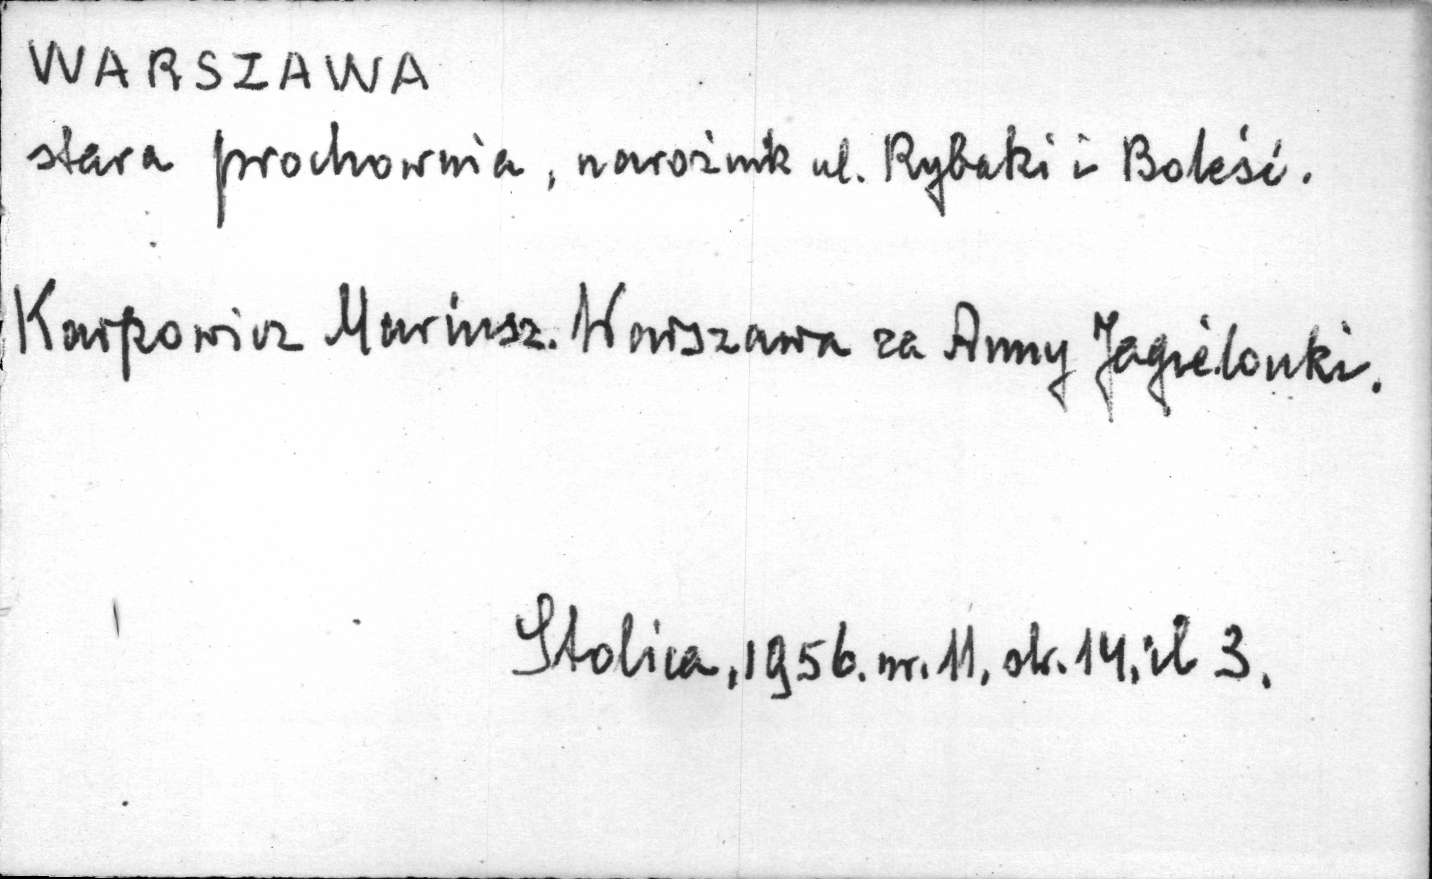 WARSZAWA
stara prochownia, narożnik ul. Rybaki i Boleść.
Karpowicz Mariusz. Warszawa za Anny Jagielonki.
Stolica, 1956. nr. 11, str. 14, il 3.